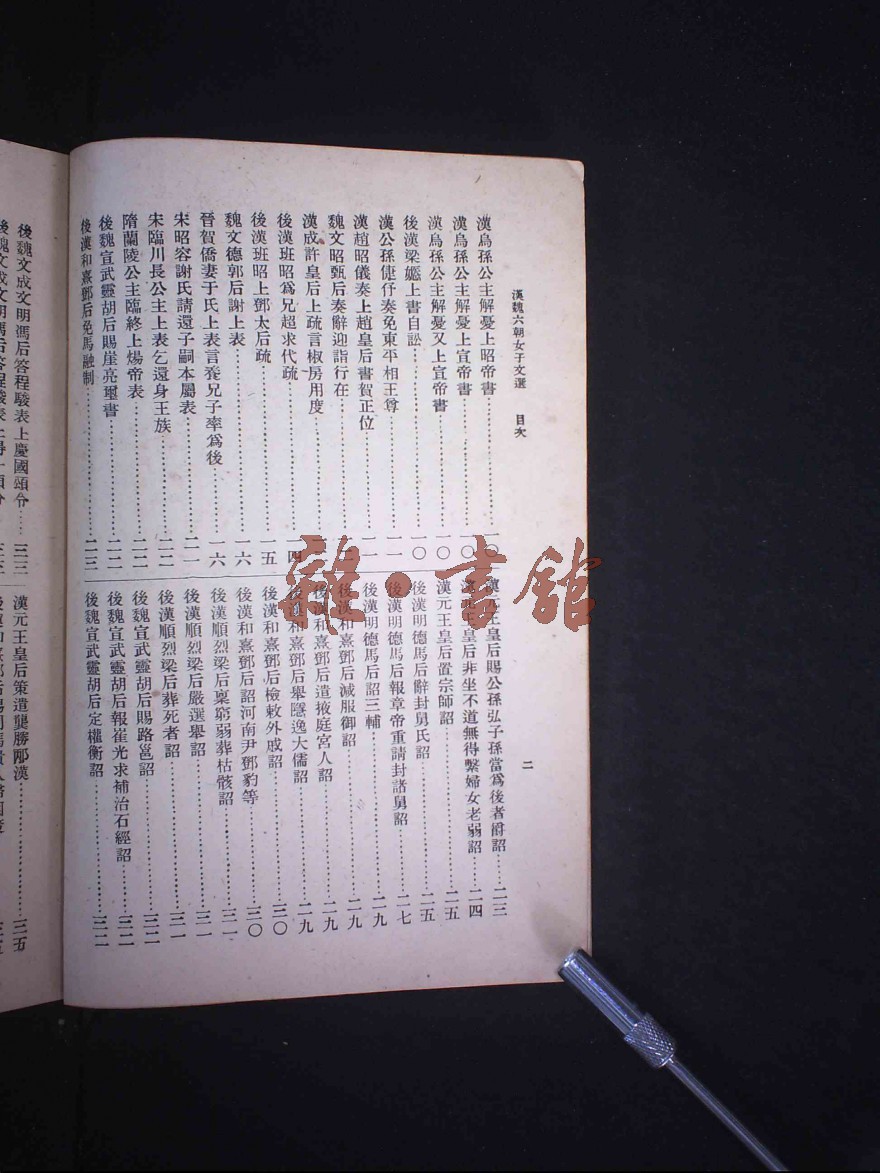 漢魏六朝女子文選　目次
二
漢烏孫公主解憂上昭帝書……一〇
漢烏孫公主解憂上宣帝書……一〇
漢烏孫公主解憂又上宣帝書……一〇
後漢梁嫕上書自訟……一〇
漢公孫倢伃奏免東平相王尊……一一
漢趙昭儀奏上趙皇后書賀正位……一一
魏文昭甄后奏辭迎詣行在……
漢成許皇后上疏言椒房用度……
後漢班昭為兄超求代疏……一四
後漢班昭上鄧太后疏……一五
魏文德郭后謝上表……一六
晉賀僑妻于氏上表言養兄子率為後……一六
宋昭容謝氏請還子嗣本屬表……二一
宋臨川長公主上表乞還身王族……二二
隋蘭陵公主臨終上煬帝表……二二
後魏宣武靈胡后賜崖亮璽書……二二
後漢和熹鄧后免馬融制……二三
漢元王皇后賜公孫弘子孫當為後者爵詔……二三
漢元王皇后非坐不道無得繫婦女老弱詔……二四
漢元王皇后置宗師詔……二五
後漢明德馬后辭封舅氏詔……二五
後漢明德馬后報章帝重請封諸舅詔……二七
後漢明德馬后詔三輔……二九
後漢和熹鄧后減服御詔……二九
後漢和熹鄧后遣掖庭宮人詔……二九
後漢和熹鄧后舉隱逸大儒詔……二九
後漢和熹鄧后檢敕外戚詔……三〇
後漢和熹鄧后詔河南尹鄧豹等……三〇
後漢順烈梁后稟窮弱葬枯骸詔……三一
後漢順烈梁后嚴選舉詔……三一
後漢順烈梁后葬死者詔……三一
後魏宣武靈胡后賜路邕詔……三二
後魏宣武靈胡后報崔光求補治石經詔……三二
後魏宣武靈胡后定權衡詔……三二
後魏文成文明馮后答程駿表上慶國頌令……三三
後魏文成文明馮后答程駿表上得一頌令
漢元王皇后策遣龔勝邴漢……三五
龍·書館